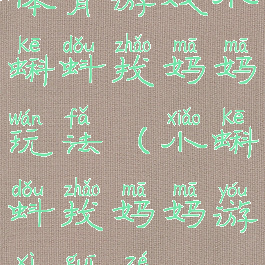 kē dǒu zhǎo mā mā
蝌蚪找妈妈
wán fǎ xiǎo kē
玩法(小蝌
dǒu zhǎo mā mā yóu
蚪找妈妈游
xì guī zé